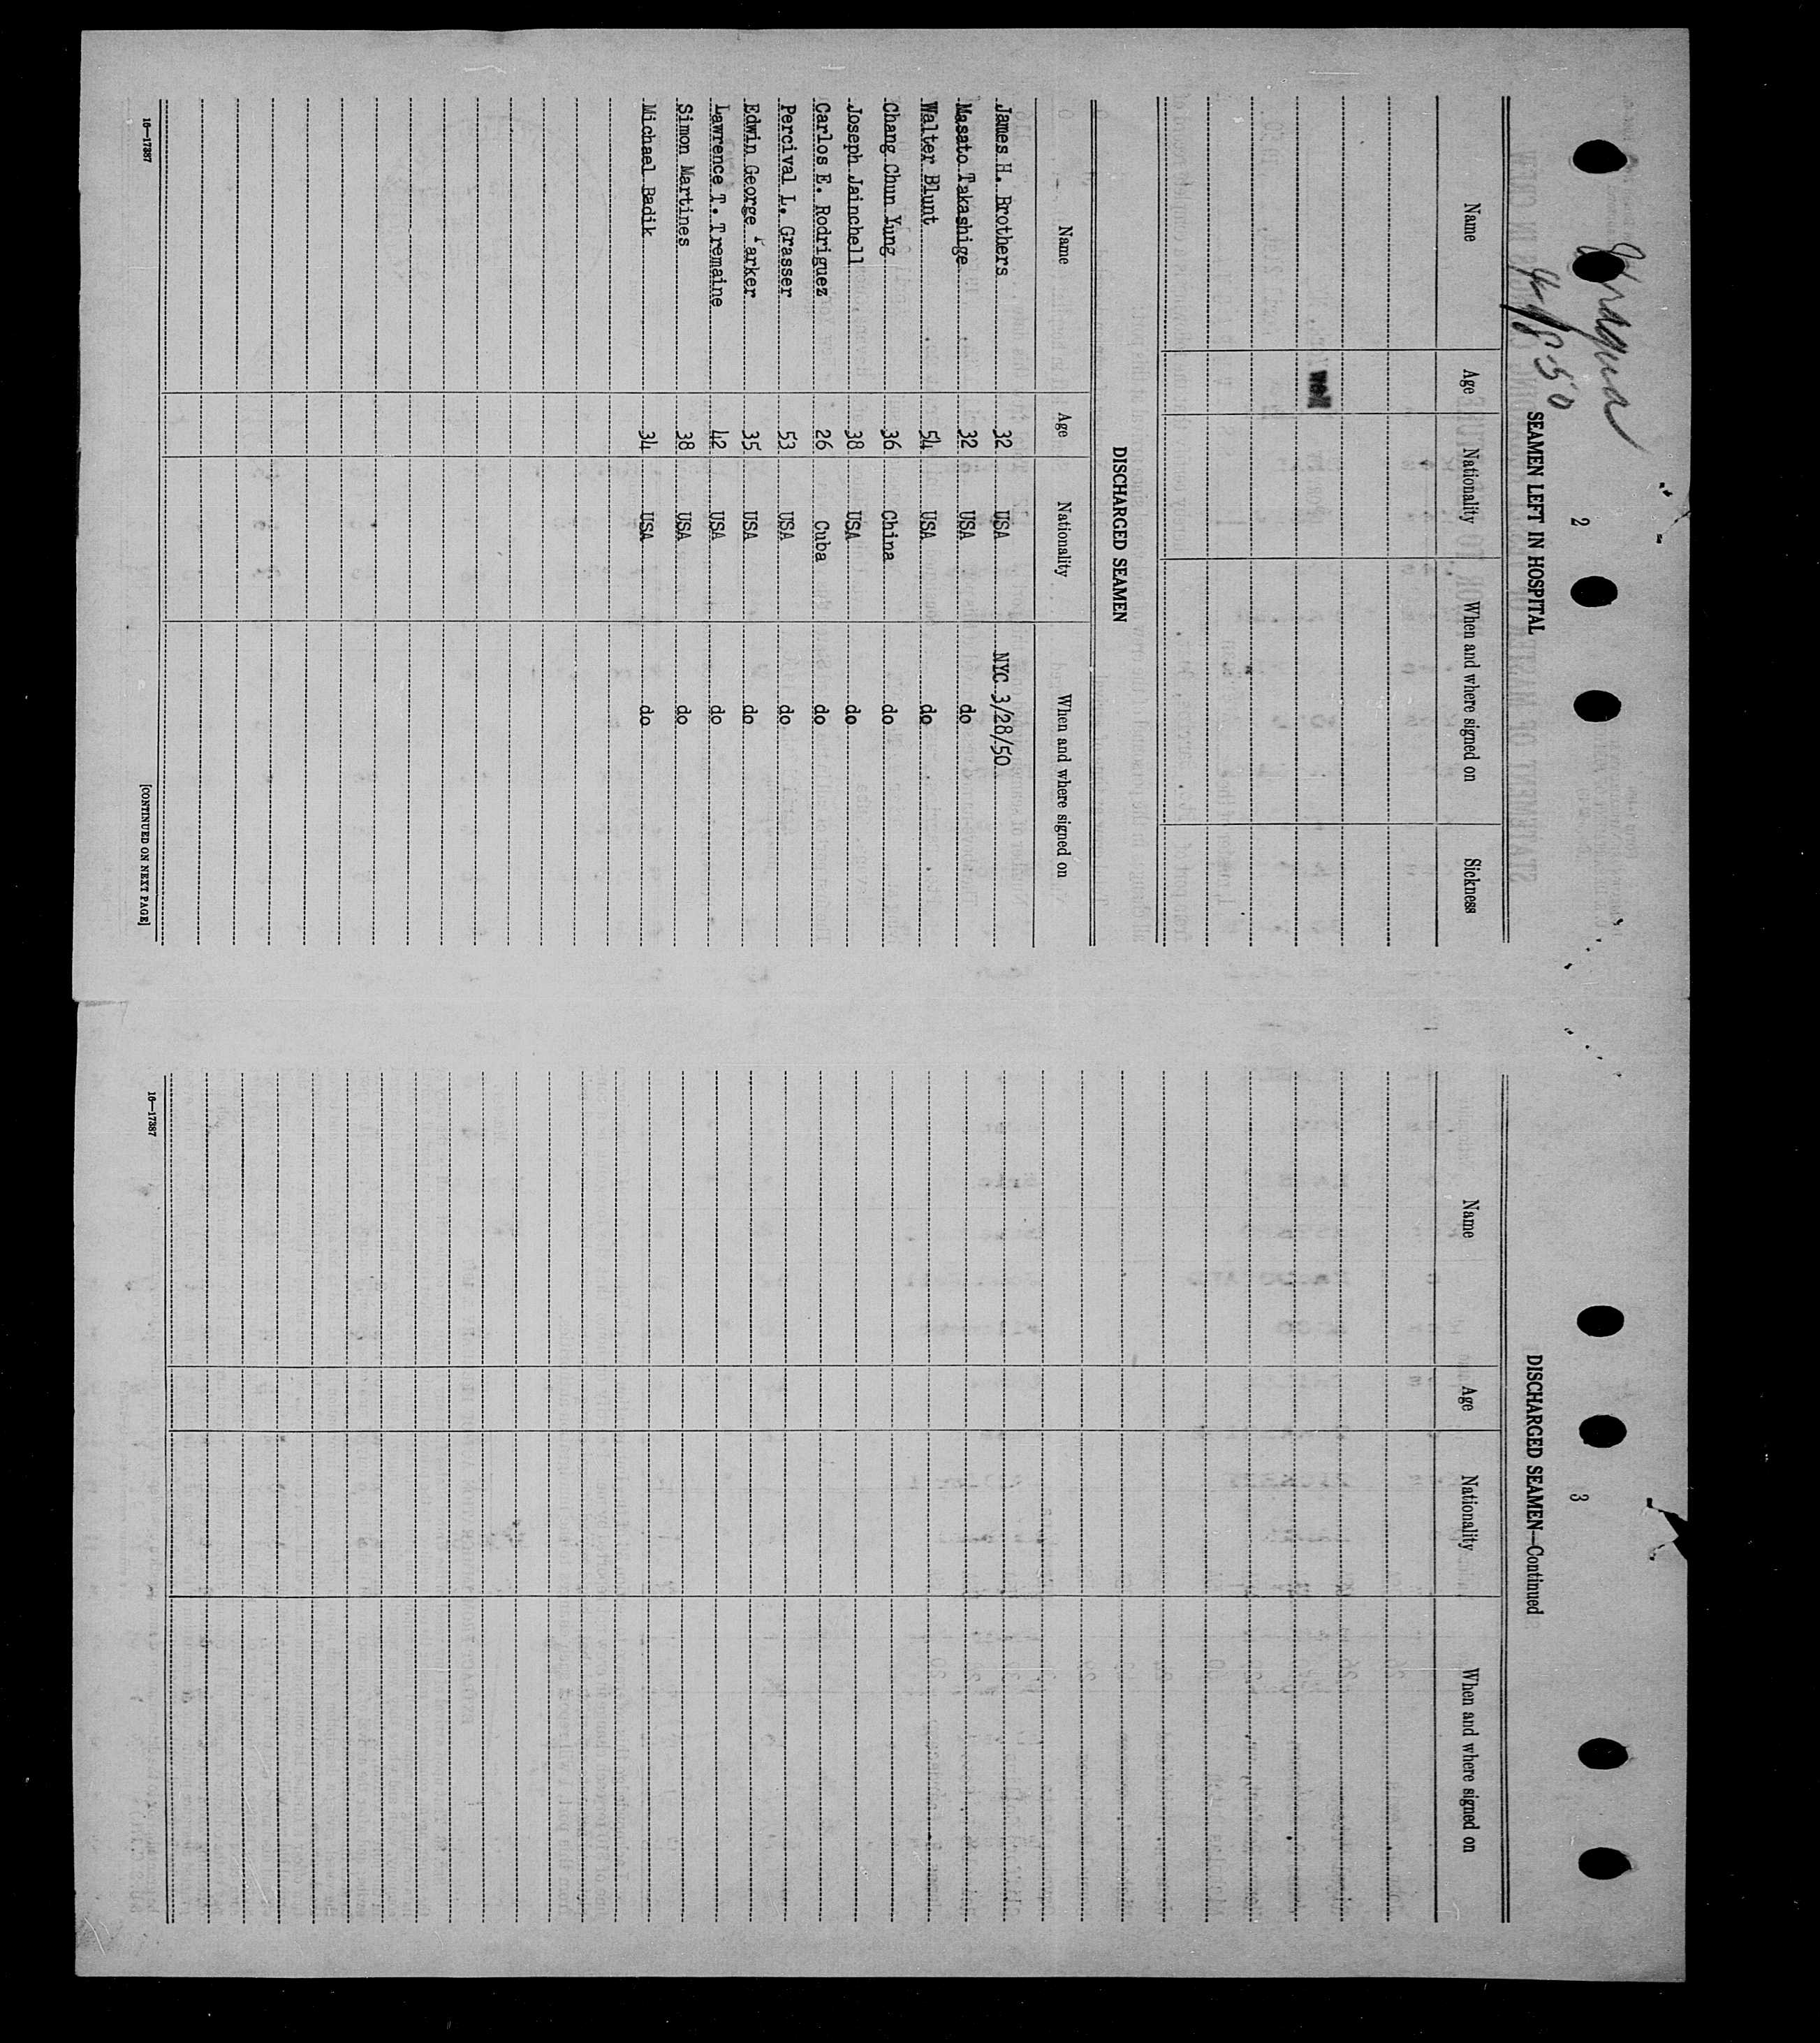 2
4/5/50
SEAMEN LEFT IN HOSPITAL
Name Age Nationality When and where signed on Sickness
DISCHARGED SEAMEN
Name Age Nationality When and where signed on
James H. Brothers 32 USA NYC 3/28/50
Masato Takashige 32 USA do
Walter Blunt 54 USA do
Chang Chun Yung 36 China do
Joseph Jainchell 38 USA do
Carlos E. Rodriguez 26 Cuba do
Percival L. Grasser 53 USA do
Edwin George Parker 35 USA do
Lawrence T. Tremaine 42 USA do
Simon Martines 38 USA do
Michael Badik 34 USA do
16—17387 [CONTINUED ON NEXT PAGE]
3
DISCHARGED SEAMEN—Continued
Name Age Nationality When and where signed on
16—17387